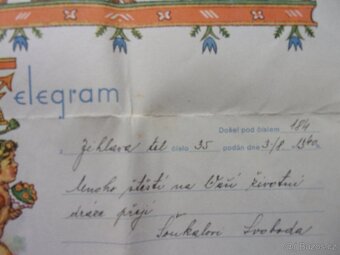 Telegram
Došel pod číslem 184
z Jihlava tel číslo 35 podán dne 3/8 1340
Mnoho štěstí na Vaší životní
dráze přejí
Svoboda
© Bazos.cz